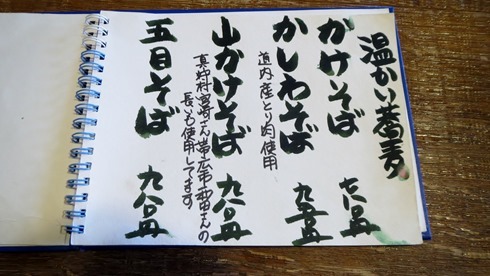 温かい蕎麦
かけそば 七八〇円
かしわそば 九五〇円
道内産とり肉使用
山かけそば 九八〇円
真狩村宮崎さん帯広市和田さんの
長いも使用してます
五目そば 九八〇円